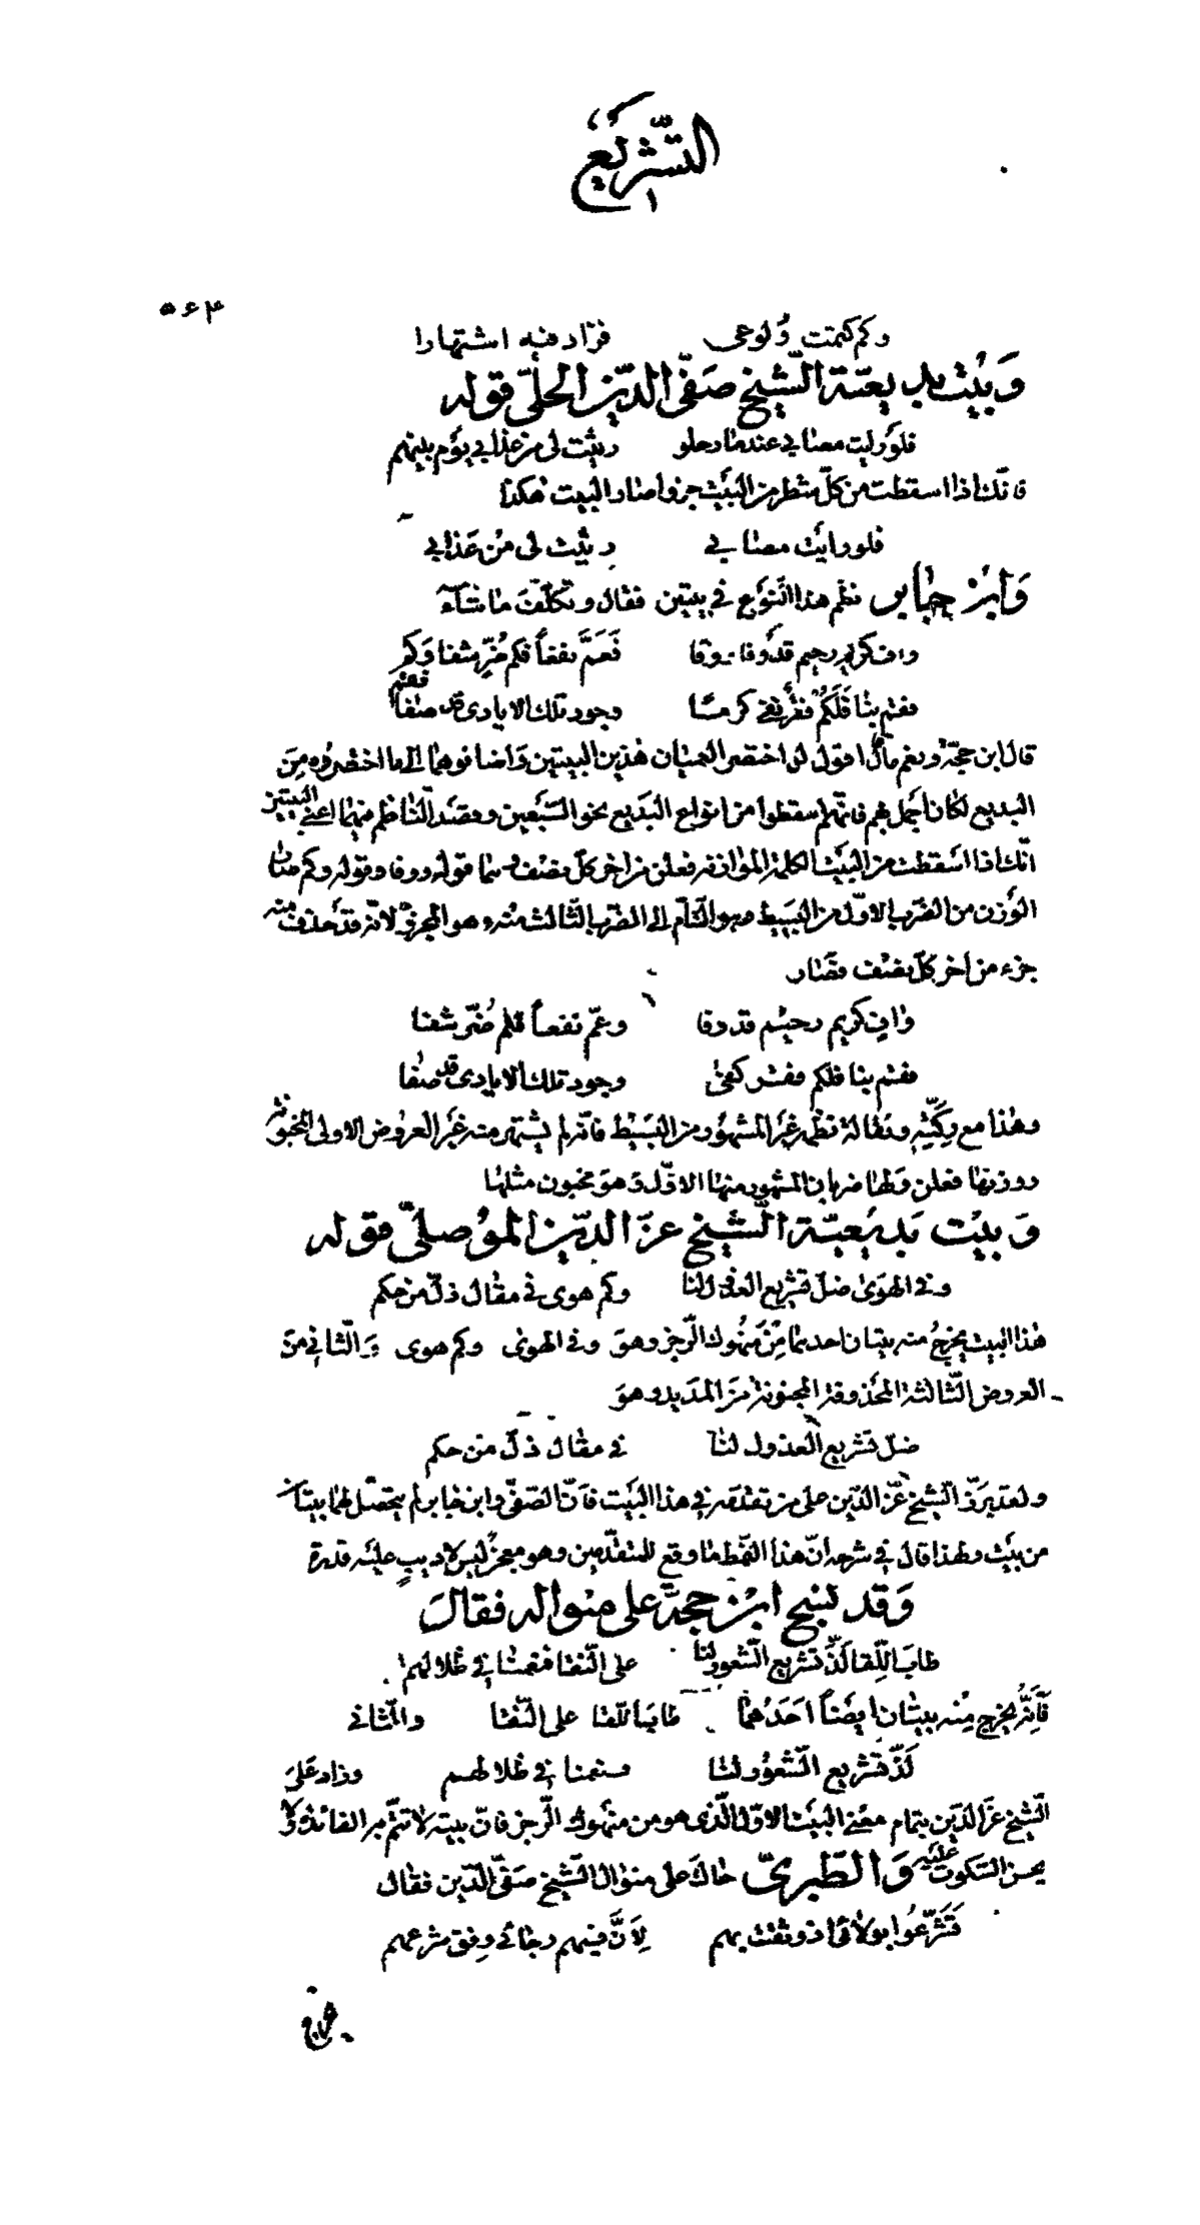 التشريع
٥٦٣
وكم كتمت ولوعي فزاد فيه اشتهارا
وبيت بديعية الشيخ صفى الدين الحلى قوله
فلو رايت مصابي عندما رحلو رثيت لى من عذابي يوم بينهم
فانك اذا اسقطت من كل شطر من البيت جزوا صار البيت هكذا
فلو رايت مصابي رثيت لى من عذابي
وابن جابر نظم هذا النوع في بيتين فقال وتكلف ما شاء
واف كريم رحيم قد وفا ووقا فعم نفعا فكم ضر شفا وكم
فقم بنا فلكم فقر كفي كرما وجود تلك الايادى قد صفا فقم
قال ابن حجة ونعم ما قال اقول لو اختصر العميان هذين البيتين واضافوهما الى ما اختصروه من
البديع لكان اجمل بهم فانهم اسقطوا من انواع البديع نحو السبعين وقصد الناظم منهما اعني البيتين
انك اذا اسقطت من البيت الكلمة الموازنه فعلن من اخر كل نصف وهما قوله ووقا وقوله وكم صار
الوزن من الضرب الاول من البسيط وهو التام الى الضرب الثالث منه وهو المجزو لانه قد حذف منه
جزء من اخر كل نصف فصار
واف كريم رحيم قد وفا وعم نفعا فكم ضر شفا
فقم بنا فلكم فقر كفى وجود تلك الايادى قد صفا
وهذا مع ركته وثقالة نظمه غير المشهور من البسيط فانه لم يشتهر منه غير العروض الاولى المخبونة
ووزنها فعلن ولها ضربان المشهور منهما الاول وهو مخبون مثلها
وبيت بديعية الشيخ عز الدين الموصلي قوله
وفي الهوى ضل تشريع العذول لنا وكم هوى في مقال ذل من حكم
هذا البيت يخرج منه بيتان احدهما من منهوك الرجز وهو وفي الهوى وكم هوى والثاني من
العروض الثالثة المحذوفة المخبونة من المديد وهو
ضل تشريع العذول لنا في مقال ذل من حكم
ولقد برز الشيخ عز الدين على من تقدمه في هذا البيت فان الصفى وابن جابر لم يتحصل لهما بيتان
من بيت ولهذا قال في شرحه ان هذا النمط ما وقع للمتقدمين وهو معجز ليس لاديب عليه قدرة
وقد نسج ابن حجة على منواله فقال
طاب اللقا لذ تشريع الشعور لنا على النقا فنعمنا في ظلالهم
فانه يخرج منه بيتان ايضا احدهما طاب اللقا على النقا والثاني
لذ تشريع الشعور لنا فنعمنا في ظلالهم وزاد على
الشيخ عز الدين بتمام معنى البيت الاول الذى هو من منهوك الرجز فان بيته لا تتم به الفائدة ولا
يحسن السكوت عليه والطبري حاك على منوال الشيخ صفى الدين فقال
فتشرعوا بولائى اذ وثقت بهم لان فيهم رجائى وفق شرعهم